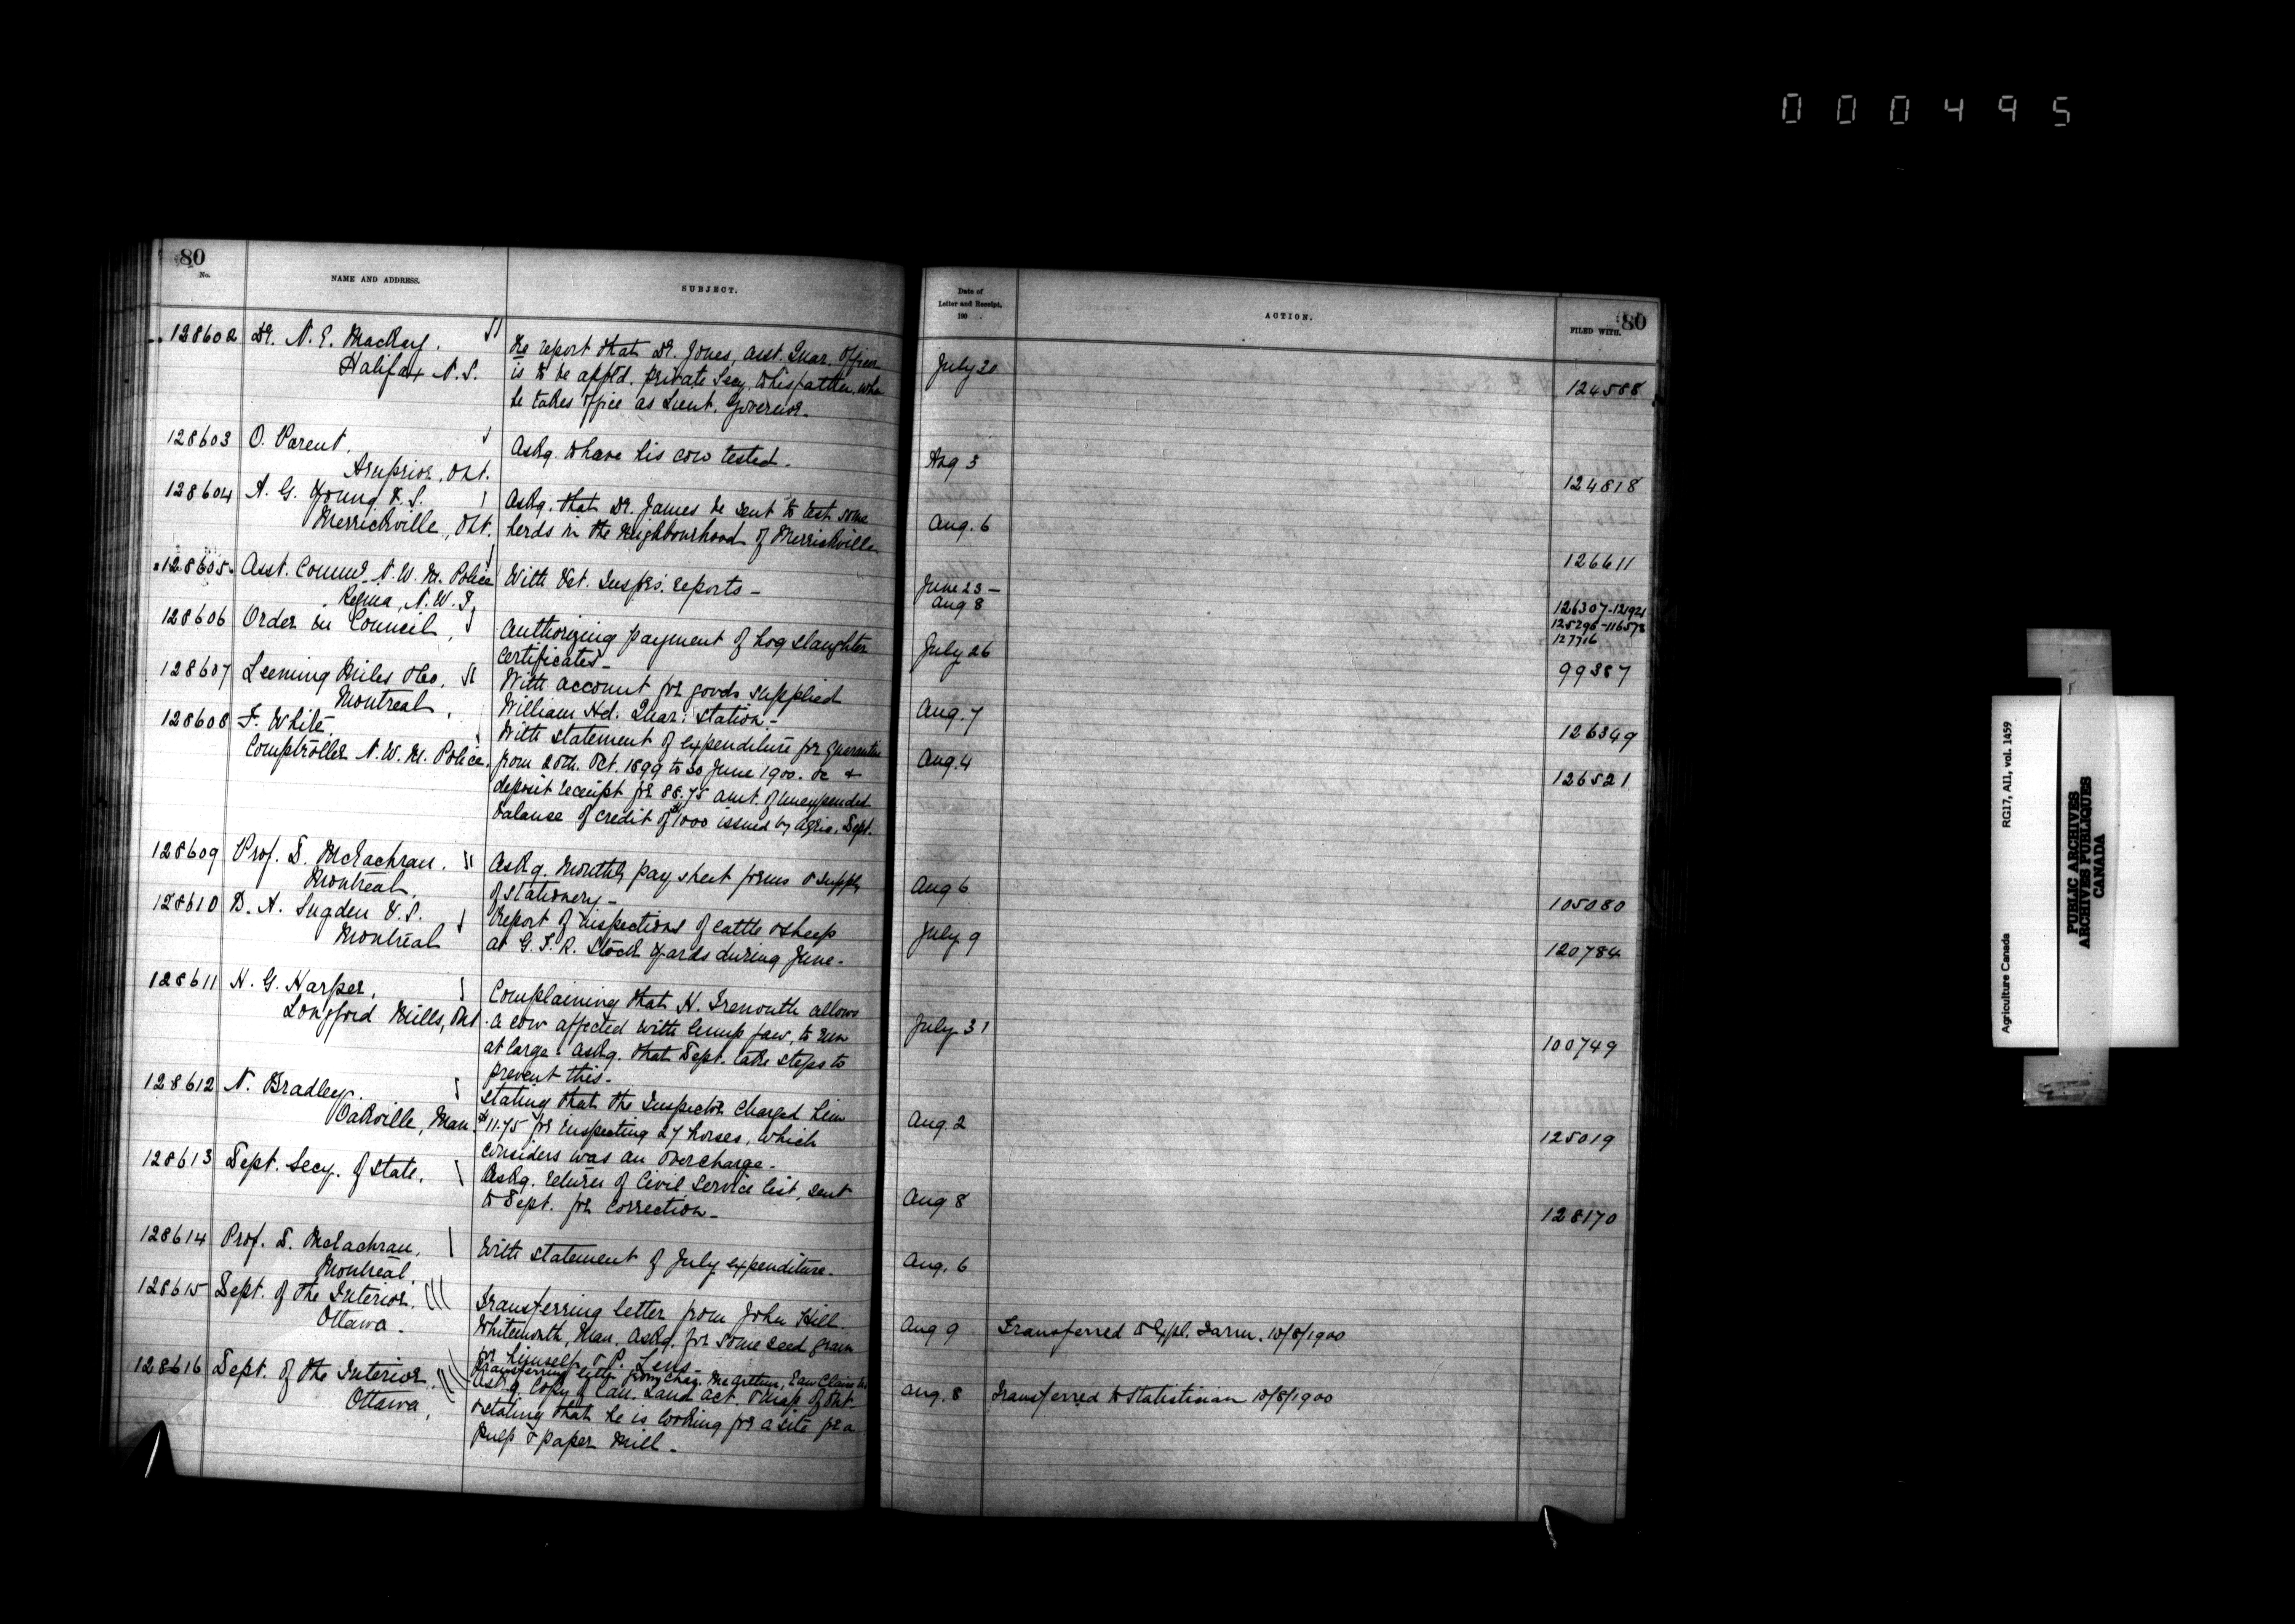 000495
80
No.
NAME AND ADDRESS.
SUBJECT.
Date of
Letter and Receipt,
190 .
ACTION.
FILED WITH.
80
128602 Dr. N. E. MacKay.
Halifax N.S.
Re report that Dr. Jones, Asst. Quar. Officer
is to be appt'd. private Secy. to his father, when
he takes office as Lieut. Governor.
July 30
124588
128603 O. Parent,
Arnprior, Ont.
Askg. to have his cow tested.
Aug 3
124818
128604 A. G. Young V.S.
Merrickville, Ont.
Askg. that Dr. James be sent to test some
herds in the neighbourhood of Merrickville
Aug. 6
126611
128605 Asst. Commr. N.W.M. Police
Regina, N.W.T.
With Vet. Insprs. reports -
June 23 -
Aug 8
126307-121921
125296-116578
127716
128606 Order in Council,
Authorizing payment of hog slaughter
certificates -
July 26
99387
128607 Leeming Miles & Co.
Montreal,
With account for goods supplied
William Hd. Quar: Station -
Aug. 7
126349
128608 F. White,
Comptroller N.W.M. Police.
With statement of expenditure for quarantine
from 20th. Oct. 1899 to 30 June 1900. &c &
deposit receipt for 88.75 amt. of unexpended
balance of credit of $1000 issued by Agric. Dept.
Aug. 4
126521
128609 Prof. D. McEachran.
Montreal,
Askg. monthly pay sheet forms & supply
of stationery -
Aug 6
105080
128610 B. A. Sugden V.S.
Montreal
Report of inspections of cattle & sheep
at G.T.R. Stock yards during June -
July 9
120784
128611 H. G. Harper,
Longford Mills, Ont.
Complaining that H. Tremouth allows
a cow affected with lump jaw, to run
at large. Askg. that Dept. take steps to
prevent this -
July 31
100749
128612 N. Bradley.
Oakville, Man.
Stating that the Inspector charged him
$11.75 for inspecting 27 horses, which
considers was an overcharge -
Aug. 2
125019
128613 Dept. Secy. of State,
Askg. return of Civil Service list, sent
to Dept. for correction -
Aug 8
128170
128614 Prof. D. McEachran,
Montreal,
With statement of July expenditure.
Aug. 6
128615 Dept. of the Interior,
Ottawa.
Transferring letter from John Hill.
Whitemouth, Man. askg. for some seed grain
for himself & P. Lens -
Aug 9
Transferred to Expl. Farm. 10/8/1900
128616 Dept. of the Interior,
Ottawa,
Transferring letter from Chas. McArthur, Eau Claire
askg. copy of Can. Land Act. & map of Ont.
& stating that he is looking for a site for a
pulp & paper mill -
Aug. 8
Transferred to Statistician 10/8/1900
Agriculture Canada
RG17, AII, vol. 1459
PUBLIC ARCHIVES
ARCHIVES PUBLIQUES
CANADA